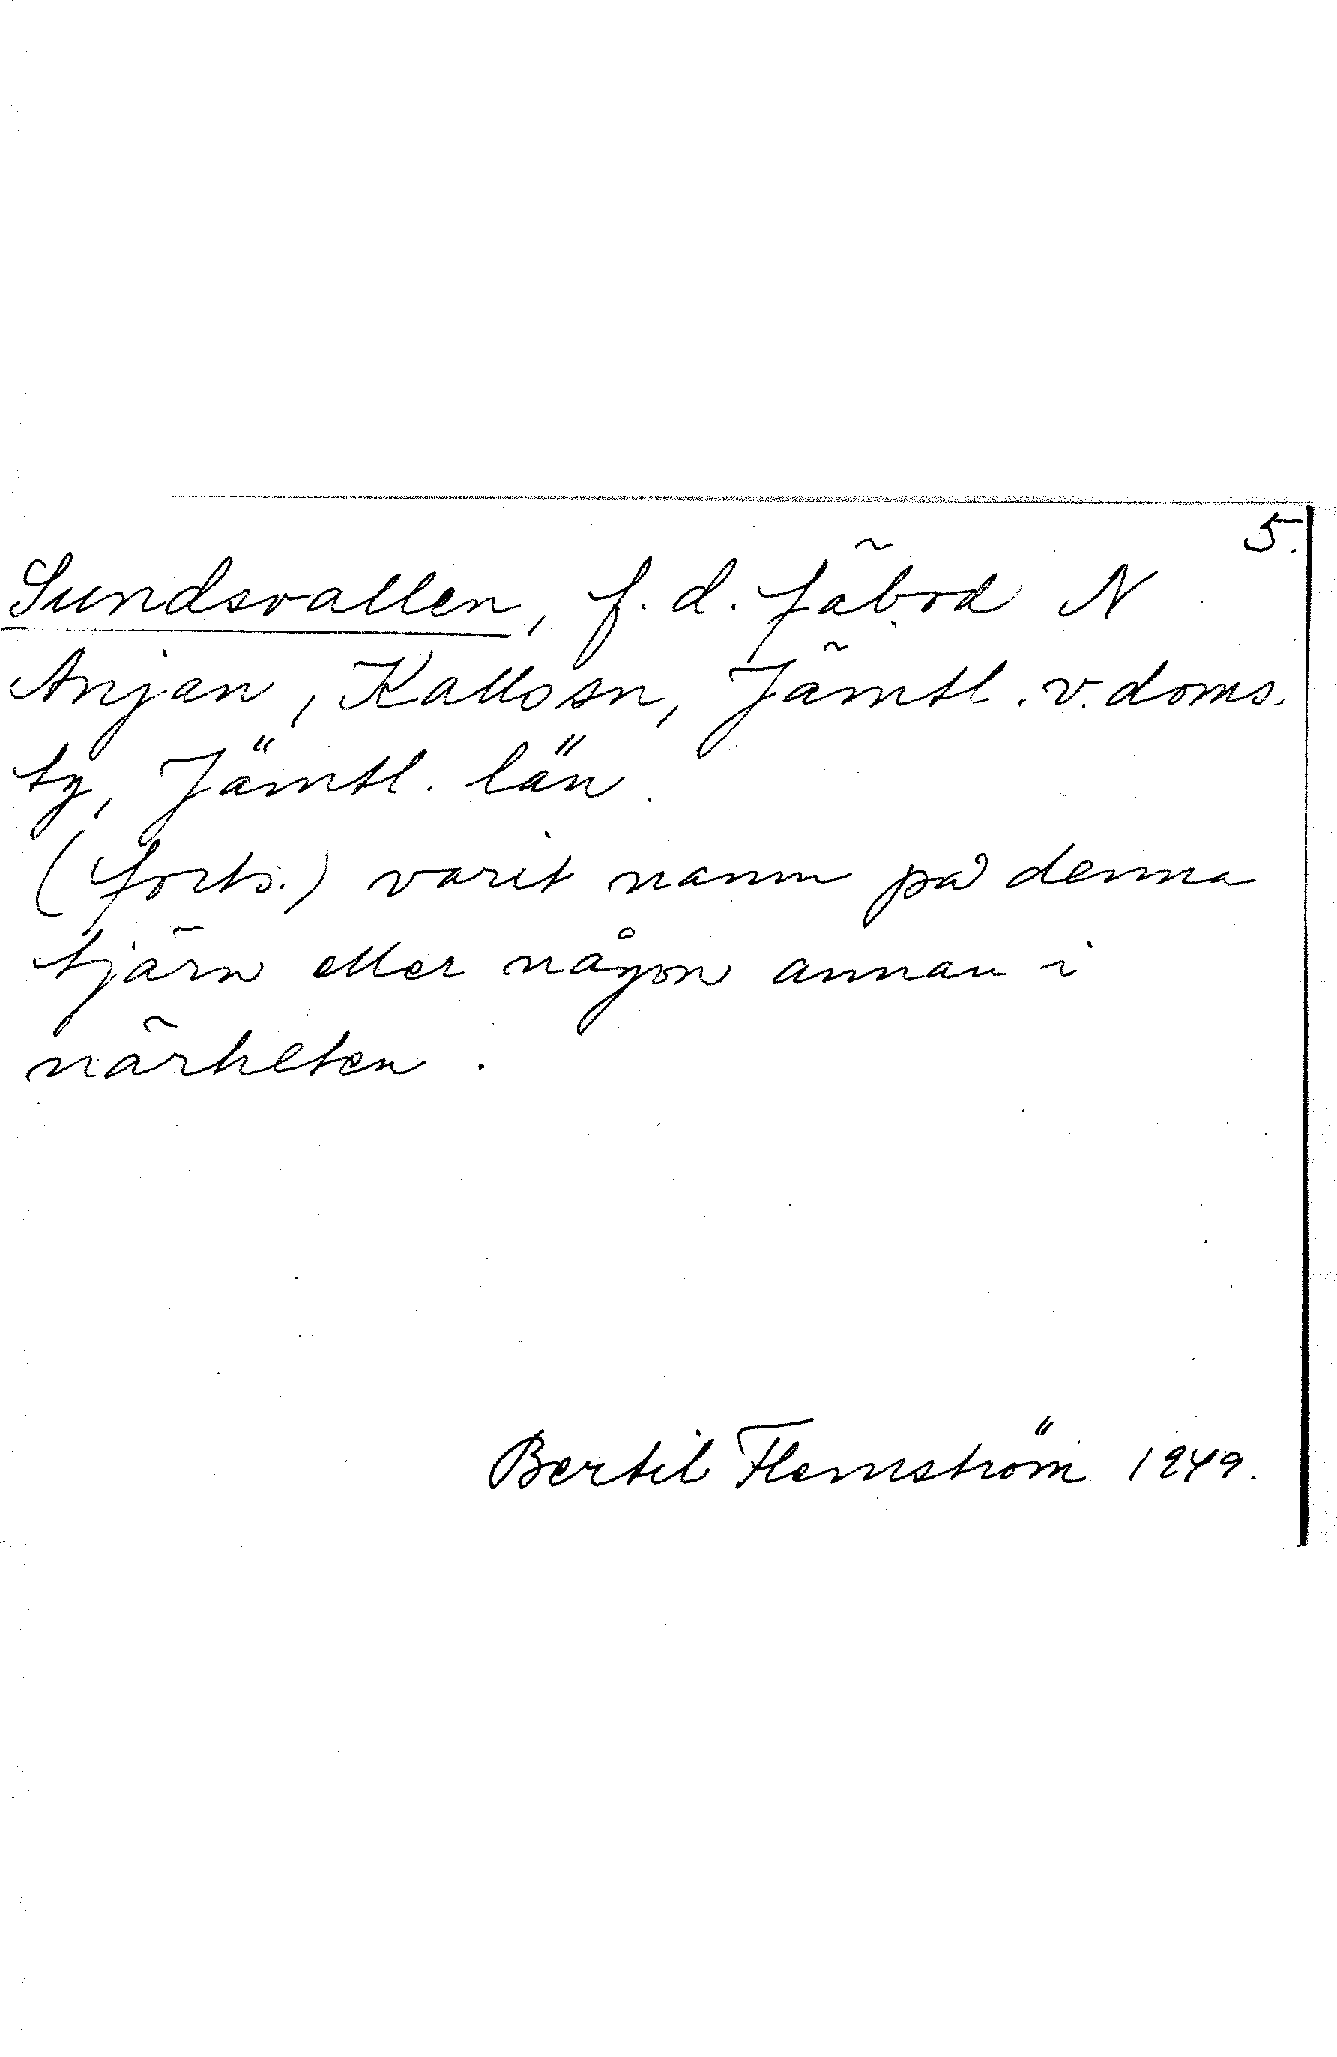 5.
Sundsvallen, f. d. fäbod N
Anjan, Kalls sn, Jämtl. v. doms.
tg, Jämtl. län.
(forts.) varit namn på denna
tjärn eller någon annan i
närheten.
Bertil Flemström 1949.